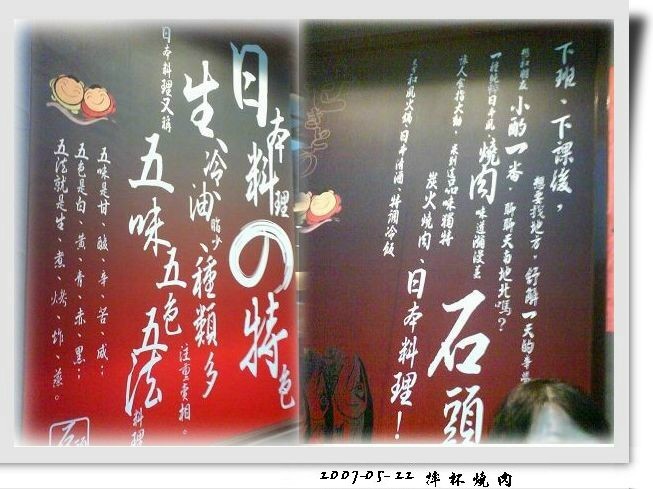 日本料理の特色
生、冷、油脂少、種類多
注重賣相。
日本料理又稱
五味五色五法料理
五味是甘、酸、辛、苦、咸;
五色是白、黃、青、赤、黑;
五法就是生、煮、烤、炸、蒸。
石頭
下班、下課後,
想要找地方,舒解一天的辛勞
想和朋友小酌一番,聊聊天南地北嗎?
一種純粹日本風燒肉味道瀰漫是石頭
味人食指大動,來到這品味獨特
炭火燒肉、日本料理!
和風火鍋、日本清酒、特調冷飯
2007-05-22 摔杯燒肉